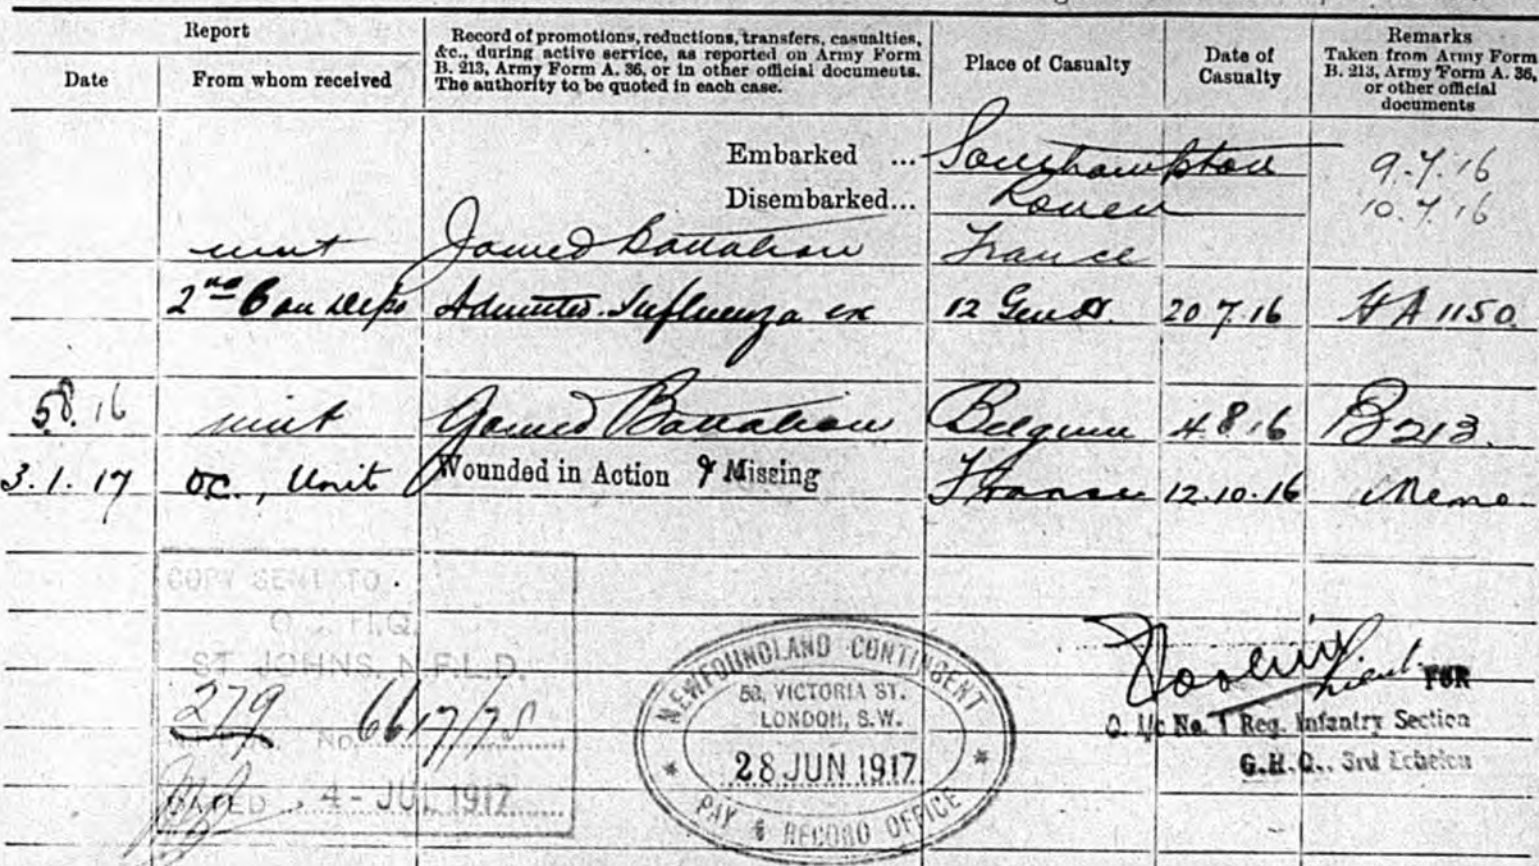 Report
Date
From whom received
Record of promotions, reductions, transfers, casualties,
&c., during active service, as reported on Army Form
B. 213, Army Form A. 36, or in other official documents.
The authority to be quoted in each case.
Place of Casualty
Date of
Casualty
Remarks
Taken from Army Form
B. 213, Army Form A. 36,
or other official
documents
Embarked ... Southampton 9.7.16
Disembarked... Rouen 10.7.16
unit Joined Battalion France
2nd Con Depo Admitted Influenza ex 12 Gen 20 7.16 HA 1150
5.8.16 unit Joined Battalion Belgium 4.8.16 B213.
3.1.17 O.C., Unit Wounded in Action & Missing France 12.10.16 Memo
COPY SENT TO.
H.Q.
ST JOHNS, N.F.L.D.
279 6617/78
No.
DATED 4 - JUL 1917
NEWFOUNDLAND CONTINGENT
58, VICTORIA ST.
LONDON, S.W.
28 JUN 1917
PAY & RECORD OFFICE
Lieut. FOR
O. I/c No. 1 Reg. Infantry Section
G.H.Q., 3rd Echelon